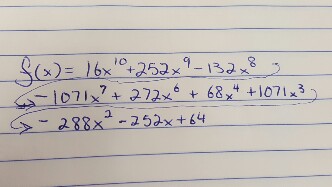 f(x) = 16x¹⁰+252x⁹-132x⁸
-1071x⁷ + 272x⁶ + 68x⁴ +1071x³
- 288x² -252x+64